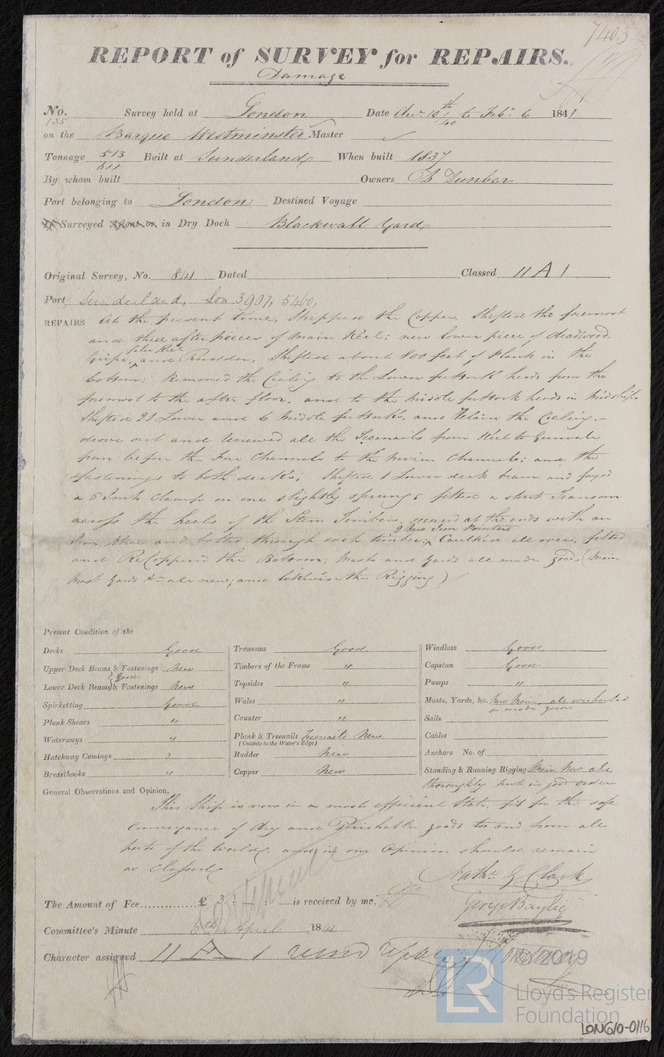 7405
REPORT of SURVEY for REPAIRS.
Damage
No. 135 Survey held at London Date 10th to Feb 6 1841
on the Barque Westminster Master
Tonnage 513 511 Built at Sunderland When built 1837
By whom built Owners Dunbar
Port belonging to London Destined Voyage
If Surveyed Afloat or in Dry Dock Blackwall Yard
Original Survey, No. 841 Dated Classed 11 A 1
Port Sunderland, Lon 3907, 5460,
REPAIRS At the present time, Stripped the Copper, Shifted the foremost
and three after pieces of Main Keel; new lower piece of deadwood,
Gripe, false Keel and Rudder, Shifted about 100 feet of Plank in the
bottom; Removed the Ceiling to the Lower futtock heads from the
foremost to the after floor, and to the middle futtock heads in Midships
Shifted 21 Lower and 6 Middle futtocks, and the Ceiling,
drove out and renewed all the Treenails from Keel to Gunwale
from before the Fore Channels to the Mizen Channels; and the
fastenings to both decks; Shifted 1 Lower deck beam and
a 5 Inch Clamp on one slightly sprung & fitted a short Transom
across the heels of the Stern Timbers, at the ends with an
Iron and bolted through each timber, 2 New Iron Pointers Caulked all over, felted
and Re Coppered the Bottom; Masts and Yards all made good. (Main
Mast Yards &c all new, and likewise the Rigging)
Present Condition of the
Decks Good
Upper Deck Beams & Fastenings New
& Good
Lower Deck Beams & Fastenings New
Spirketting Good
Plank Shears "
Waterways "
Hatchway Comings "
Breasthooks "
Transoms Good
Timbers of the Frame "
Topsides "
Wales "
Counter "
Plank & Treenails Treenails New
(Outside to the Water's Edge)
Rudder New
Copper New
Windlass Good
Capstan Good
Pumps "
Masts, Yards, &c. New Main, all overhauled
& made good
Sails
Cables
Anchors No. of
Standing & Running Rigging Main New also
thoroughly put in good order
General Observations and Opinion,
This Ship is now in a most efficient State, fit for the safe
Conveyance of dry and Perishable goods to and from all
parts of the World, and in our Opinion should remain
as Classed
Nathl G. Clark
George Bayley
The Amount of Fee £ is received by me,
Committee's Minute 6th April 1841
Character assigned 11 A 1
LR
2019
Lloyd's Register
Foundation
LON610-0116